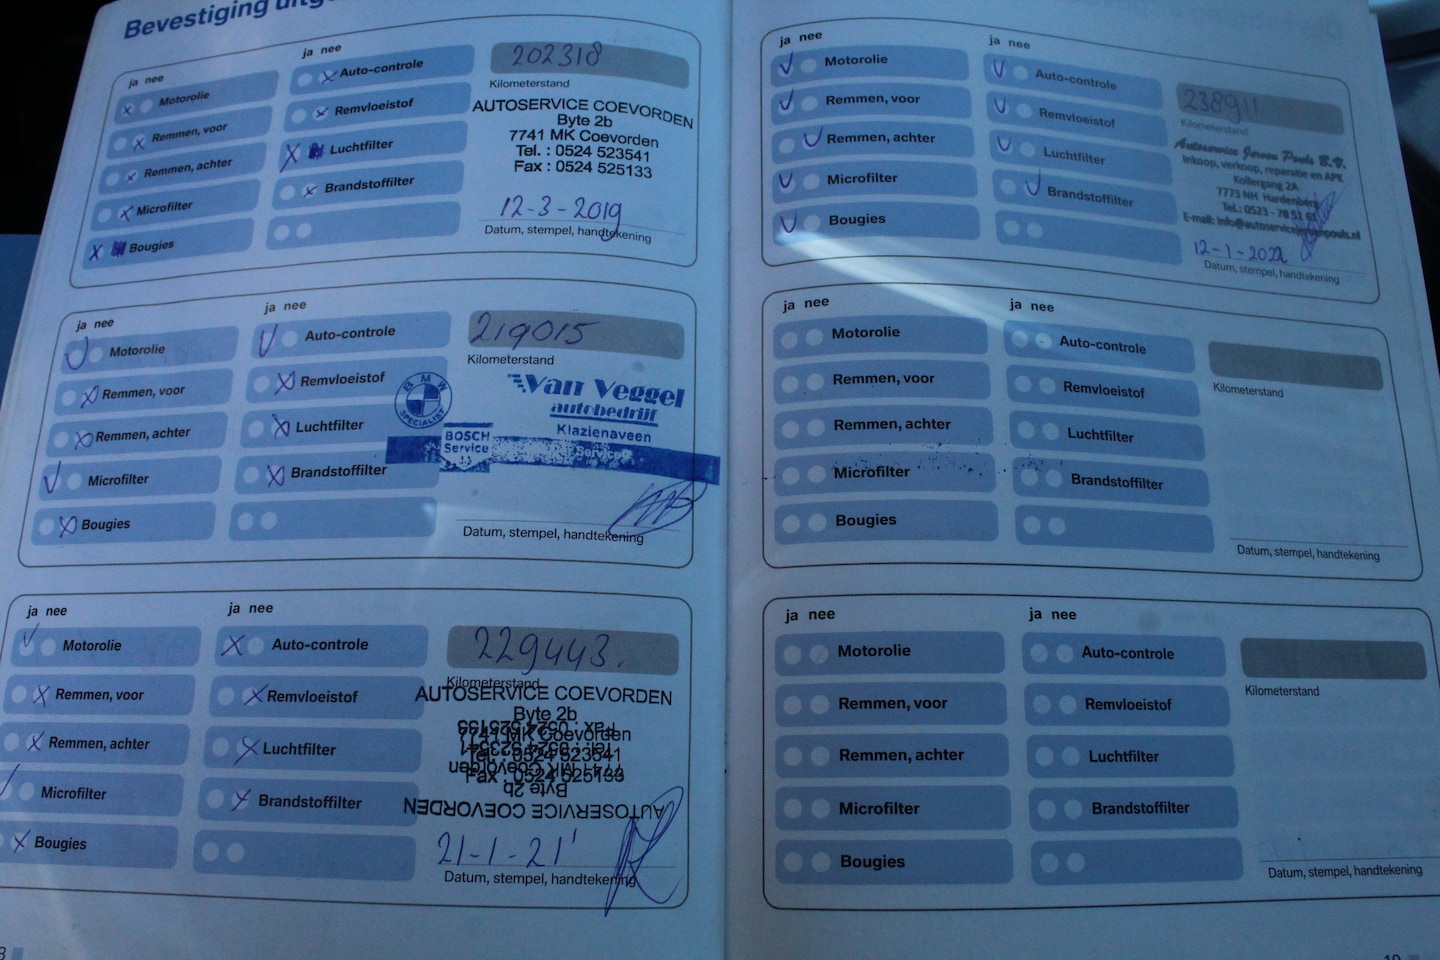 Bevestiging
ja nee
Motorolie
Remmen, voor
Remmen, achter
Microfilter
Bougies
ja nee
Auto-controle
Remvloeistof
Luchtfilter
Brandstoffilter
202318
Kilometerstand
AUTOSERVICE COEVORDEN
Byte 2b
7741 MK Coevorden
Tel. : 0524 523541
Fax : 0524 525133
12-3-2019
Datum, stempel, handtekening
ja nee
Motorolie
Remmen, voor
Remmen, achter
Microfilter
Bougies
ja nee
Auto-controle
Remvloeistof
Luchtfilter
Brandstoffilter
219015
Kilometerstand
BMW
SPECIALIST
Van Veggel
autobedrijf
Klazienaveen
BOSCH
Service
Services
Datum, stempel, handtekening
ja nee
Motorolie
Remmen, voor
Remmen, achter
Microfilter
Bougies
ja nee
Auto-controle
Remvloeistof
Luchtfilter
Brandstoffilter
229443.
Kilometerstand
AUTOSERVICE COEVORDEN
Byte 2b
7741 MK Coevorden
Tel. : 0524 523541
Fax : 0524 525133
Byte 2b
AUTOSERVICE COEVORDEN
21-1-21'
Datum, stempel, handtekening
ja nee
Motorolie
Remmen, voor
Remmen, achter
Microfilter
Bougies
ja nee
Auto-controle
Remvloeistof
Luchtfilter
Brandstoffilter
238911
Kilometerstand
Autoservice Jeroen Pouls B.V.
Inkoop, verkoop, reparatie en APK
Kollergang 2A
7773 NH Hardenberg
Tel.: 0523 - 78 51 61
E-mail: info@autoservicejeroenpouls.nl
12-1-2022
Datum, stempel, handtekening
ja nee
Motorolie
Remmen, voor
Remmen, achter
Microfilter
Bougies
ja nee
Auto-controle
Remvloeistof
Luchtfilter
Brandstoffilter
Kilometerstand
Datum, stempel, handtekening
ja nee
Motorolie
Remmen, voor
Remmen, achter
Microfilter
Bougies
ja nee
Auto-controle
Remvloeistof
Luchtfilter
Brandstoffilter
Kilometerstand
Datum, stempel, handtekening